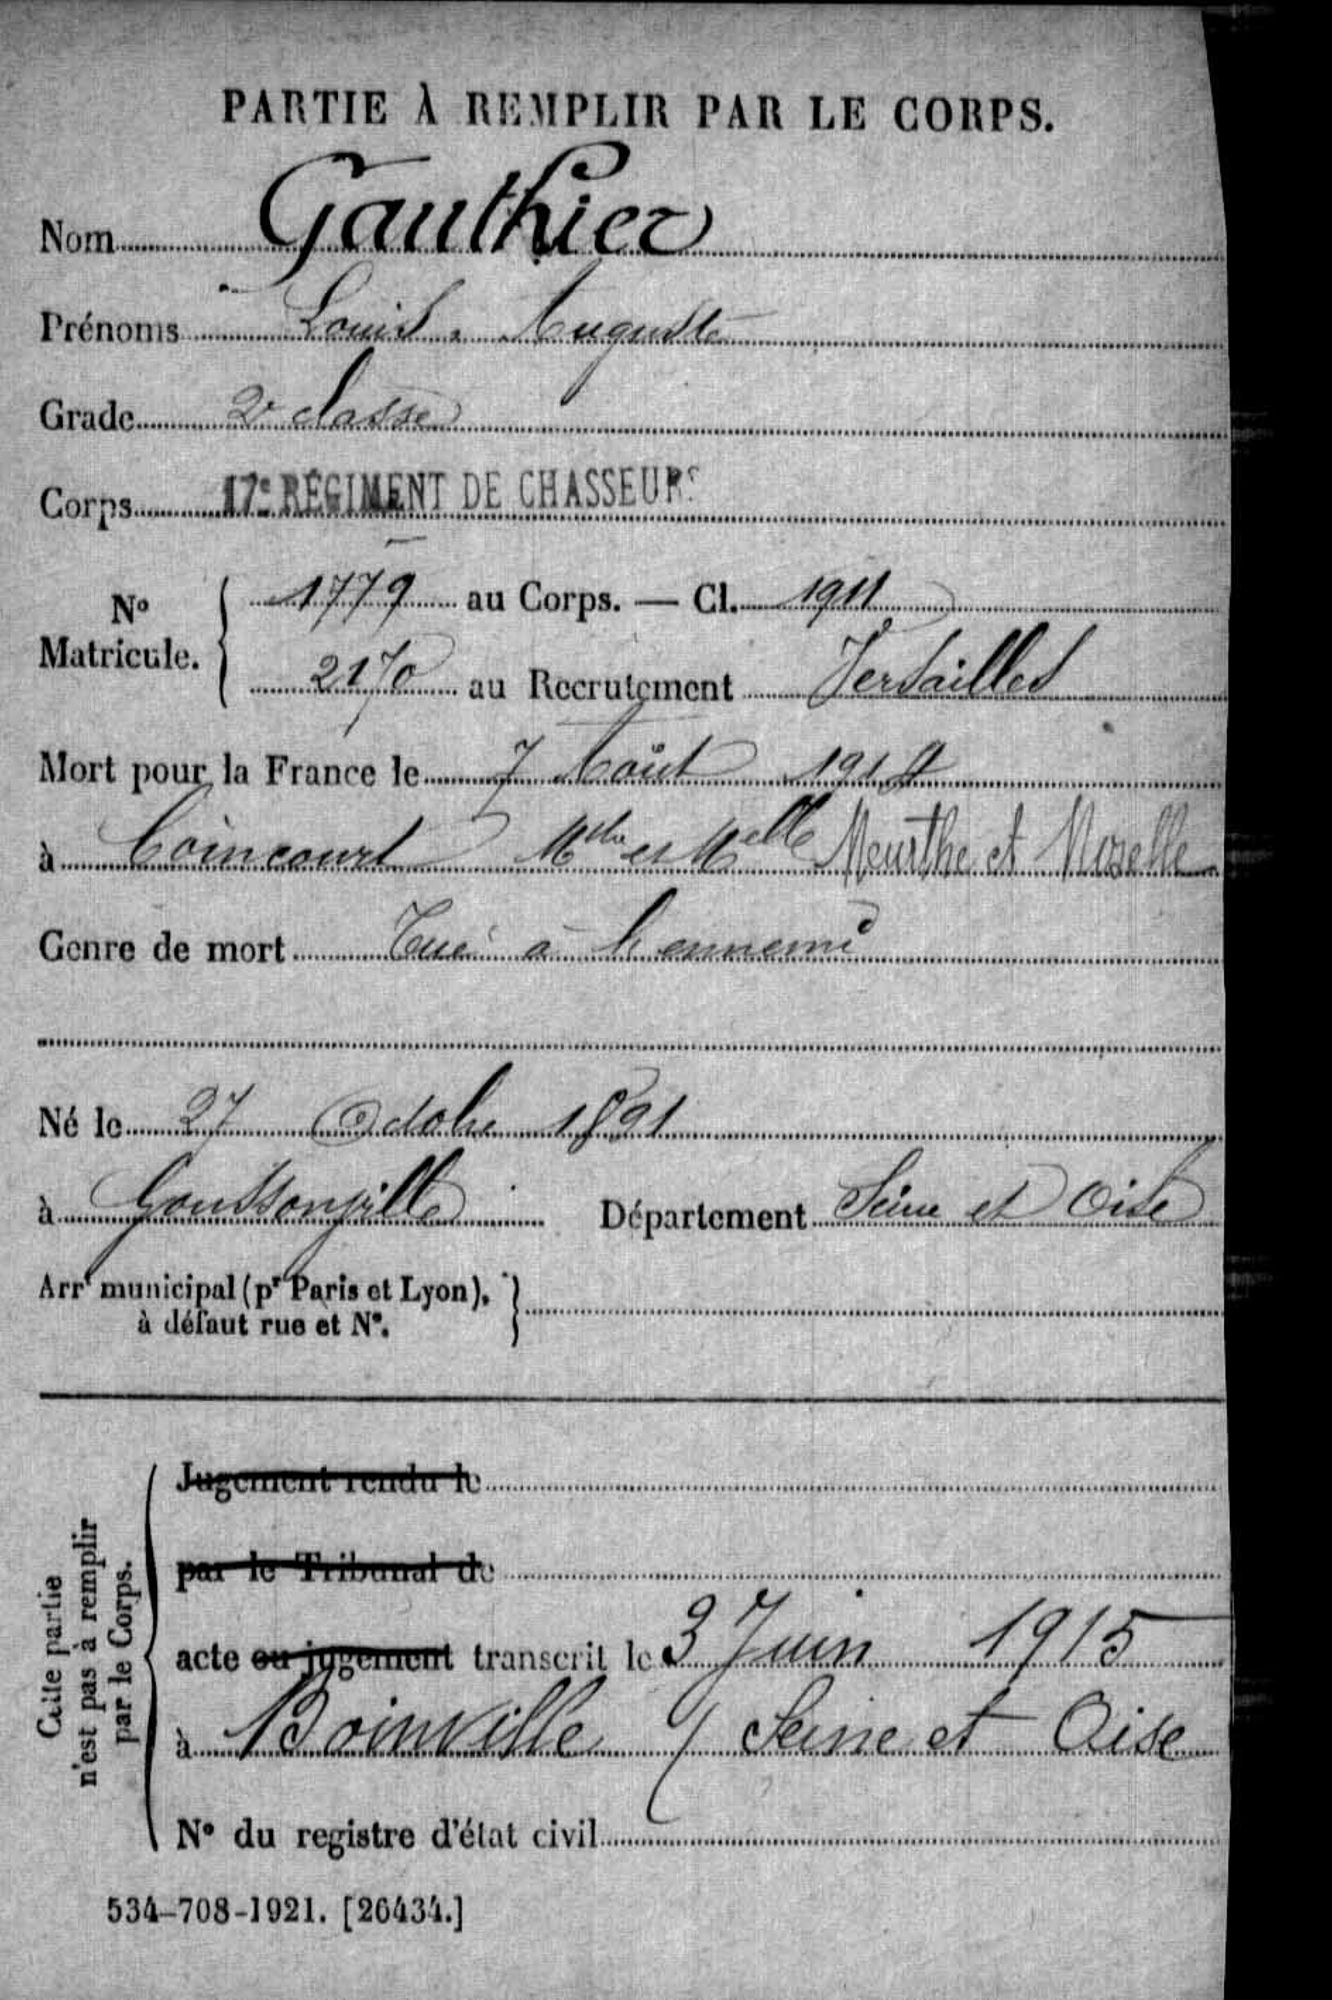 PARTIE À REMPLIR PAR LE CORPS.
Nom Gauthier
Prénoms Louis, Auguste
Grade 2e classe
Corps 17e RÉGIMENT DE CHASSEURS
No Matricule. { 1779 au Corps. — Cl. 1911
2170 au Recrutement Versailles
Mort pour la France le 7 Août 1914
à Coincourt Mthe et Melle Meurthe et Moselle
Genre de mort Tué à l'ennemi
Né le 27 Octobre 1891
à Goussonville Département Seine et Oise
Arrt municipal (pr Paris et Lyon), à défaut rue et No. }
Cette partie n'est pas à remplir par le Corps. {
Jugement rendu le
par le Tribunal de
acte ou jugement transcrit le 3 Juin 1915
à Boinville / Seine et Oise
No du registre d'état civil
534-708-1921. [26434.]